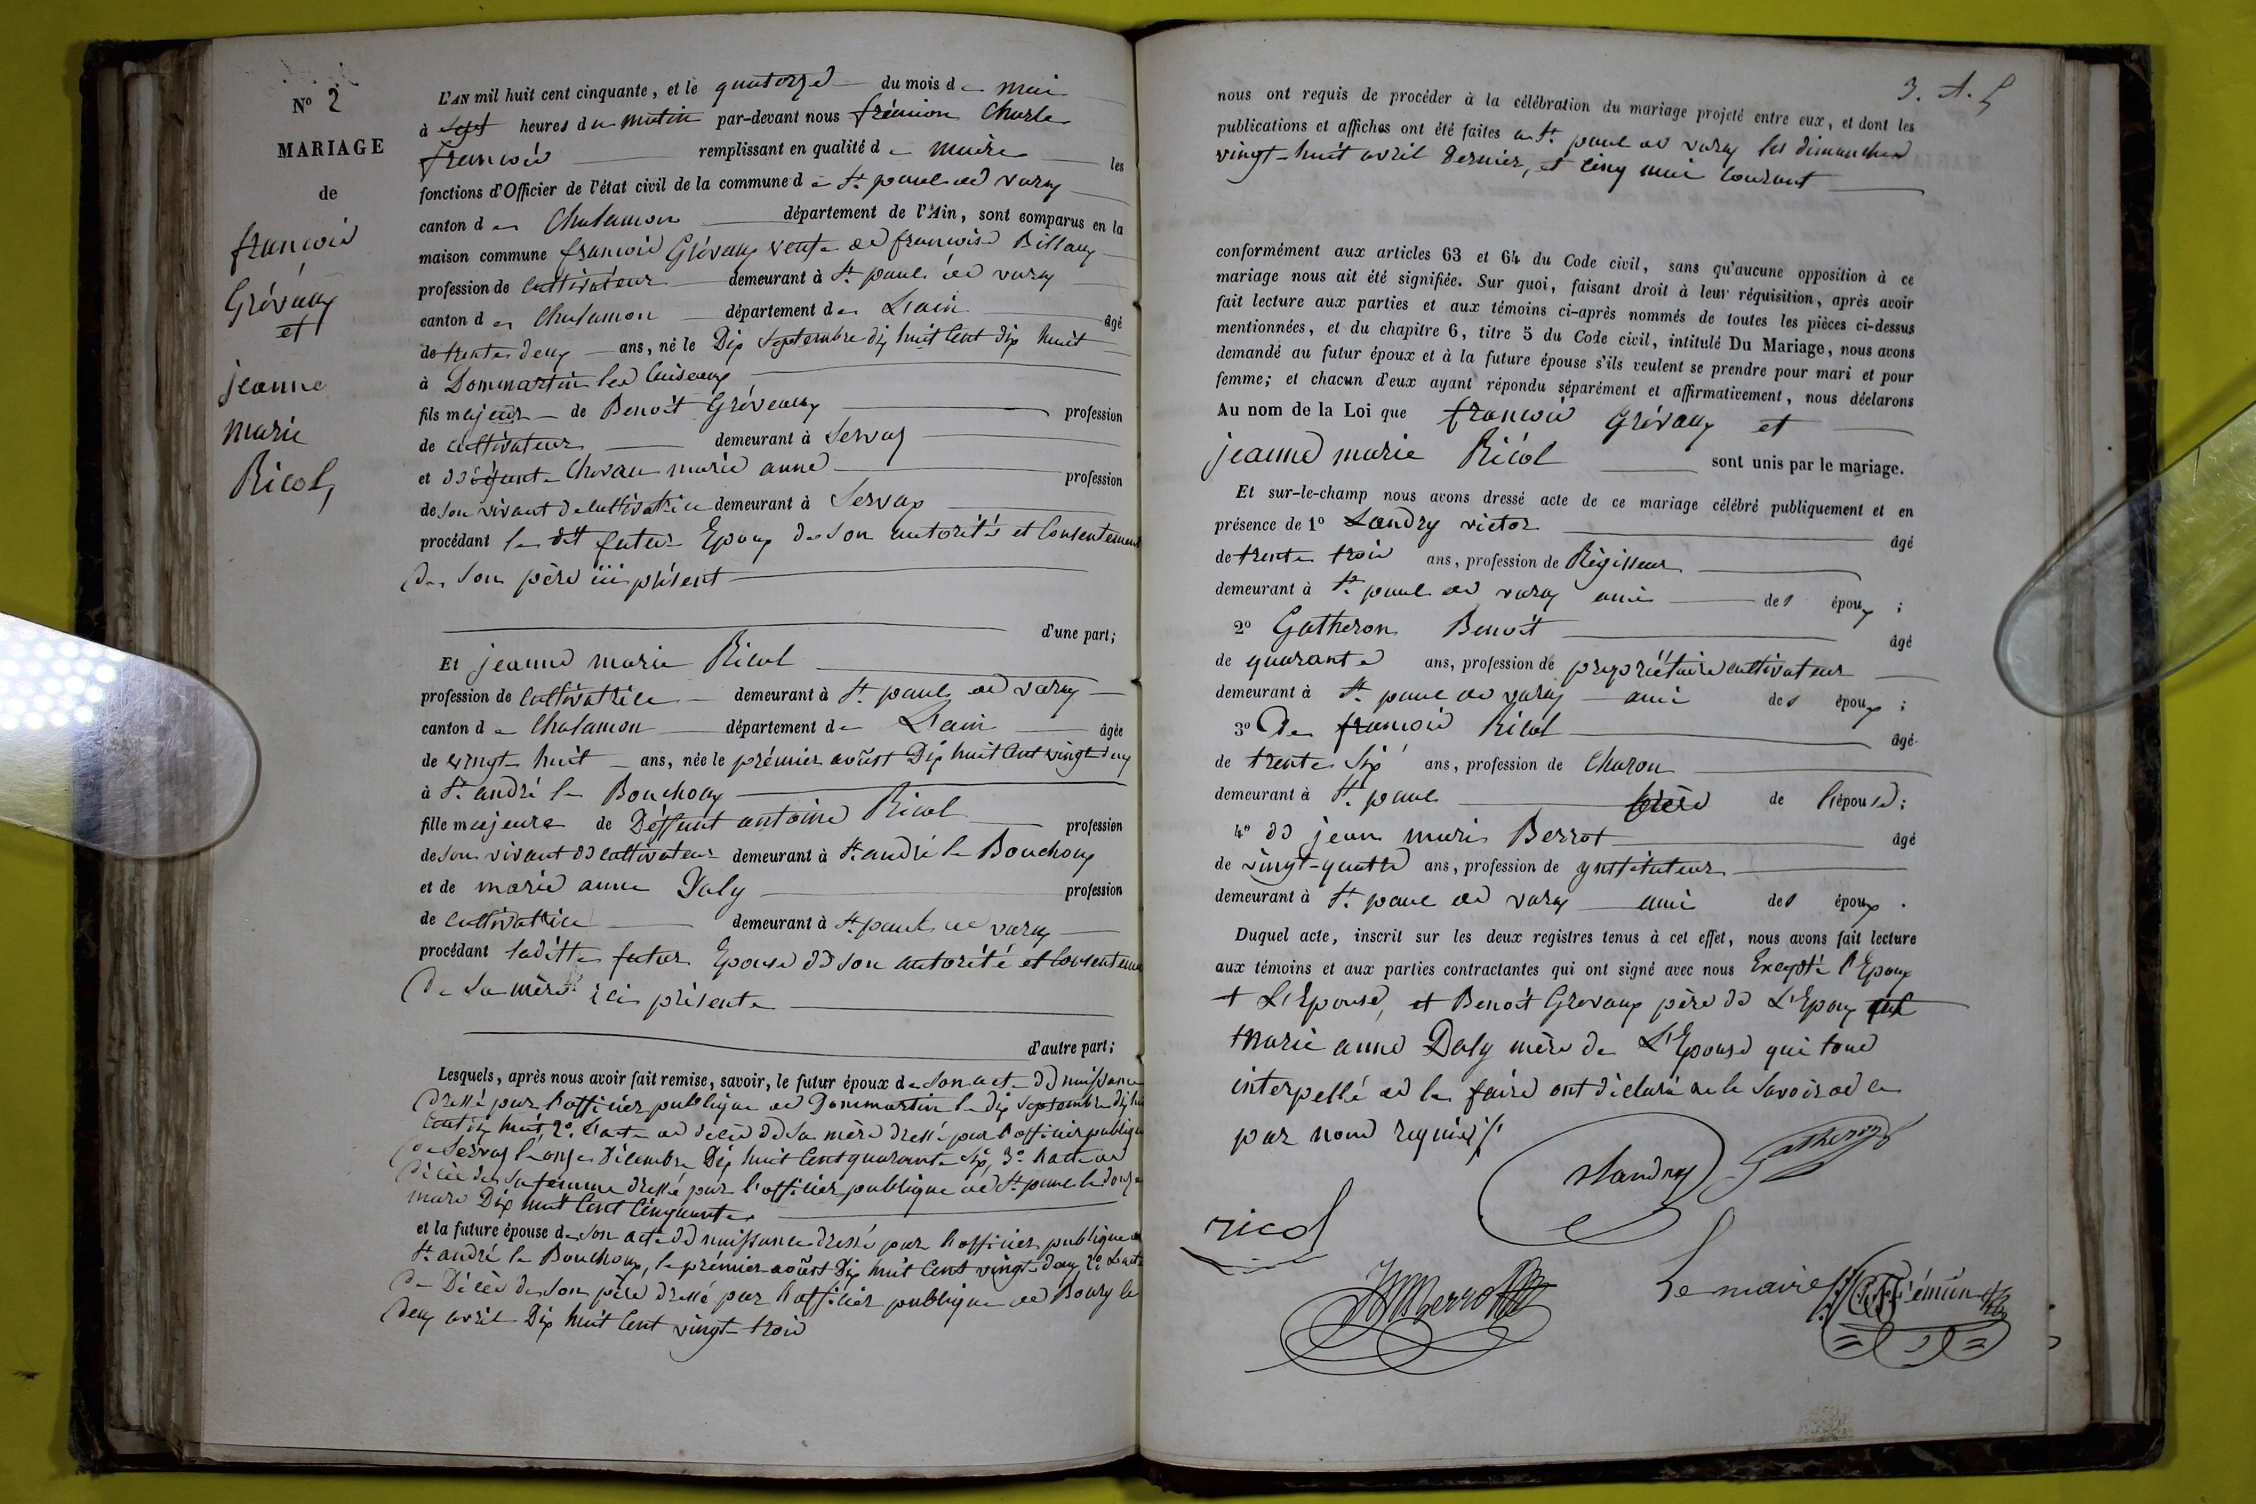 N° 2
MARIAGE
de
francois
Grévaux
et
jeanne
marie
Ricol,
L'AN mil huit cent cinquante, et le quatorze du mois de mai
à sept heures du matin par-devant nous frémion Charle
francois remplissant en qualité de maire les
fonctions d'Officier de l'état civil de la commune de St paul de varax
canton de Chalamon département de l'Ain, sont comparus en la
maison commune francois Grévaux veuf de francoise Billaux
profession de cultivateur demeurant à St paul de varax
canton de Chalamon département de L'ain âgé
de trente deux ans, né le Dix septembre dix huit Cent dix huit
à Dommartin les Cuiseaux
fils majeur de Benoit Gréveaux profession
de cultivateur demeurant à Servas
et de défunte marie anne profession
de son vivant de cultivatrice demeurant à Servas
procédant le dit futur Epoux de son autorité et Consentement
De son père ici présent
d'une part;
Et jeanne marie Ricol
profession de cultivatrice demeurant à St paul de varax
canton de Chalamon département de L'ain âgée
de vingt huit ans, née le prémier août Dix huit Cent vingt deux
à St andré le Bouchoux
fille majeure de Déffunt antoine Ricol profession
de son vivant de cultivateur demeurant à St andré le Bouchoux
et de marie anne Daly profession
de cultivatrice demeurant à St paul de varax
procédant laditte futur Epouse de son autorité et Consentement
De sa mère ici présente
d'autre part;
Lesquels, après nous avoir fait remise, savoir, le futur époux de son acte de naissance
Dressé par l'officier publique de Dommartin le dix septembre dix huit
Cent dix huit, 2° L'acte de décès de sa mère dressé par l'officier publique
de Servas le onze Décembre Dix huit Cent quarante six, 3° L'acte de
Décès de sa femme dressé par l'officier publique de St paul le douze
mars Dix huit Cent Cinquante
et la future épouse de son acte de naissance dressé par l'officier publique de
St andré le Bouchoux, le prémier août Dix huit Cent vingt deux, 2° L'acte
De Décès de son père dressé par l'officier publique de Bourg le
deux avril Dix huit Cent vingt trois
3.
nous ont requis de procéder à la célébration du mariage projeté entre eux, et dont les
publications et affiches ont été faites a St paul de varax les dimanches
vingt-huit avril dernier, et cinq mai courant
conformément aux articles 63 et 64 du Code civil, sans qu'aucune opposition à ce
mariage nous ait été signifiée. Sur quoi, faisant droit à leur réquisition, après avoir
fait lecture aux parties et aux témoins ci-après nommés de toutes les pièces ci-dessus
mentionnées, et du chapitre 6, titre 5 du Code civil, intitulé Du Mariage, nous avons
demandé au futur époux et à la future épouse s'ils veulent se prendre pour mari et pour
femme; et chacun d'eux ayant répondu séparément et affirmativement, nous déclarons
Au nom de la Loi que francois Grévaux et
jeanne marie Ricol sont unis par le mariage.
Et sur-le-champ nous avons dressé acte de ce mariage célébré publiquement et en
présence de 1° Landry victor âgé
de trente trois ans, profession de Régisseur
demeurant à St paul de varax ami des époux;
2° Gatheron Benoit âgé
de quarante ans, profession de propriétaire cultivateur
demeurant à St paul de varax ami des époux;
3° De francois Ricol âgé
de trente six ans, profession de Charon
demeurant à St paul frère de l'épouse;
4° de jean marie Berrot âgé
de vingt-quatre ans, profession de ynstituteur
demeurant à St paul de varax ami des époux.
Duquel acte, inscrit sur les deux registres tenus à cet effet, nous avons fait lecture
aux témoins et aux parties contractantes qui ont signé avec nous Excepté l'Epoux
et L'Epouse, et Benoit Grevaux père de L'Epoux et
marie anne Daly mère de L'Epouse qui tous
interpellé de le faire ont déclaré ne le savoir de ce
par nous requis
Landry
Gatheron
ricol
JM Berrot
Le maire
Frémion